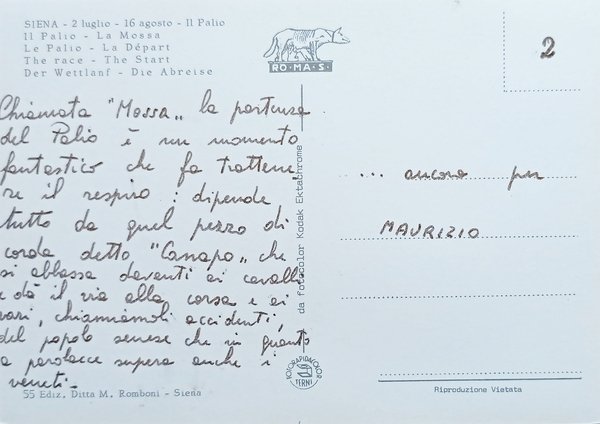 SIENA - 2 luglio - 16 agosto - Il Palio
Il Palio - La Mossa
Le Palio - La Départ
The race - The Start
Der Wettlanf - Die Abreise
RO·MA·S·
2
Chiamata "Mossa„ la partenza
del Palio è un momento
fantastico che fa trattene,
re il respiro: dipende
tutto da quel pezzo di
corda detto "Canapo„ che
si abbassa davanti ai cavalli
e dà il via alla corsa e ai
vari, chiamiamoli accidenti,
del popolo senese che in quanto
a parolacce supera anche i
veneti.
da fotocolor Kodak Ektachrome
... ancora per
MAURIZIO
FOTORAPIDACOLOR
TERNI
55 Ediz. Ditta M. Romboni - Siena
Riproduzione Vietata